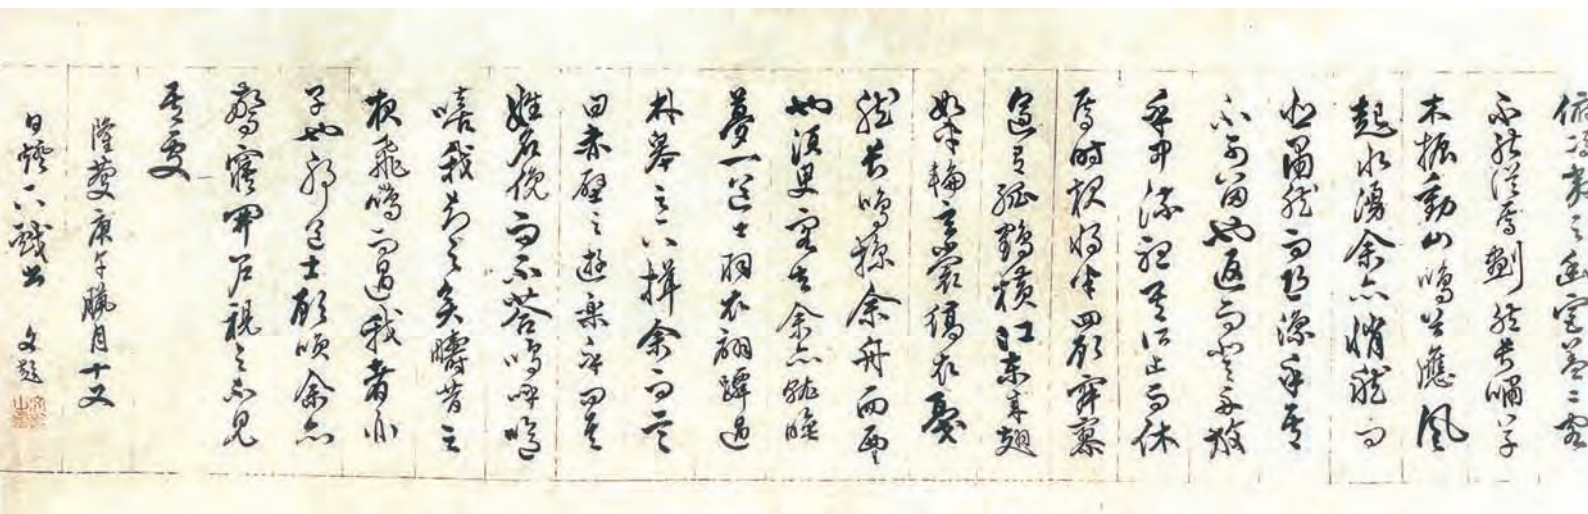 俯馮夷之幽宮蓋二客
不能從焉劃然長嘯草
木振動山鳴谷應風
起水湧余亦悄然而
悲肅然而恐凜乎其
不可留也返而登舟放
乎中流聽其所止而休
焉時夜將半四顧寂寥
適有孤鶴橫江東來翅
如車輪玄裳縞衣戛
然長鳴掠余舟而西
也須臾客去余亦就睡
夢一道士羽衣翩躚過
林皋之下揖余而言
曰赤壁之遊樂乎問其
姓名俛而不答嗚呼噫
嘻我知之矣疇昔之
夜飛鳴而過我者非
子也耶道士顧余亦
驚寤開戶視之不見
其處
隆慶庚午臘月十又
日燈下戲書 文